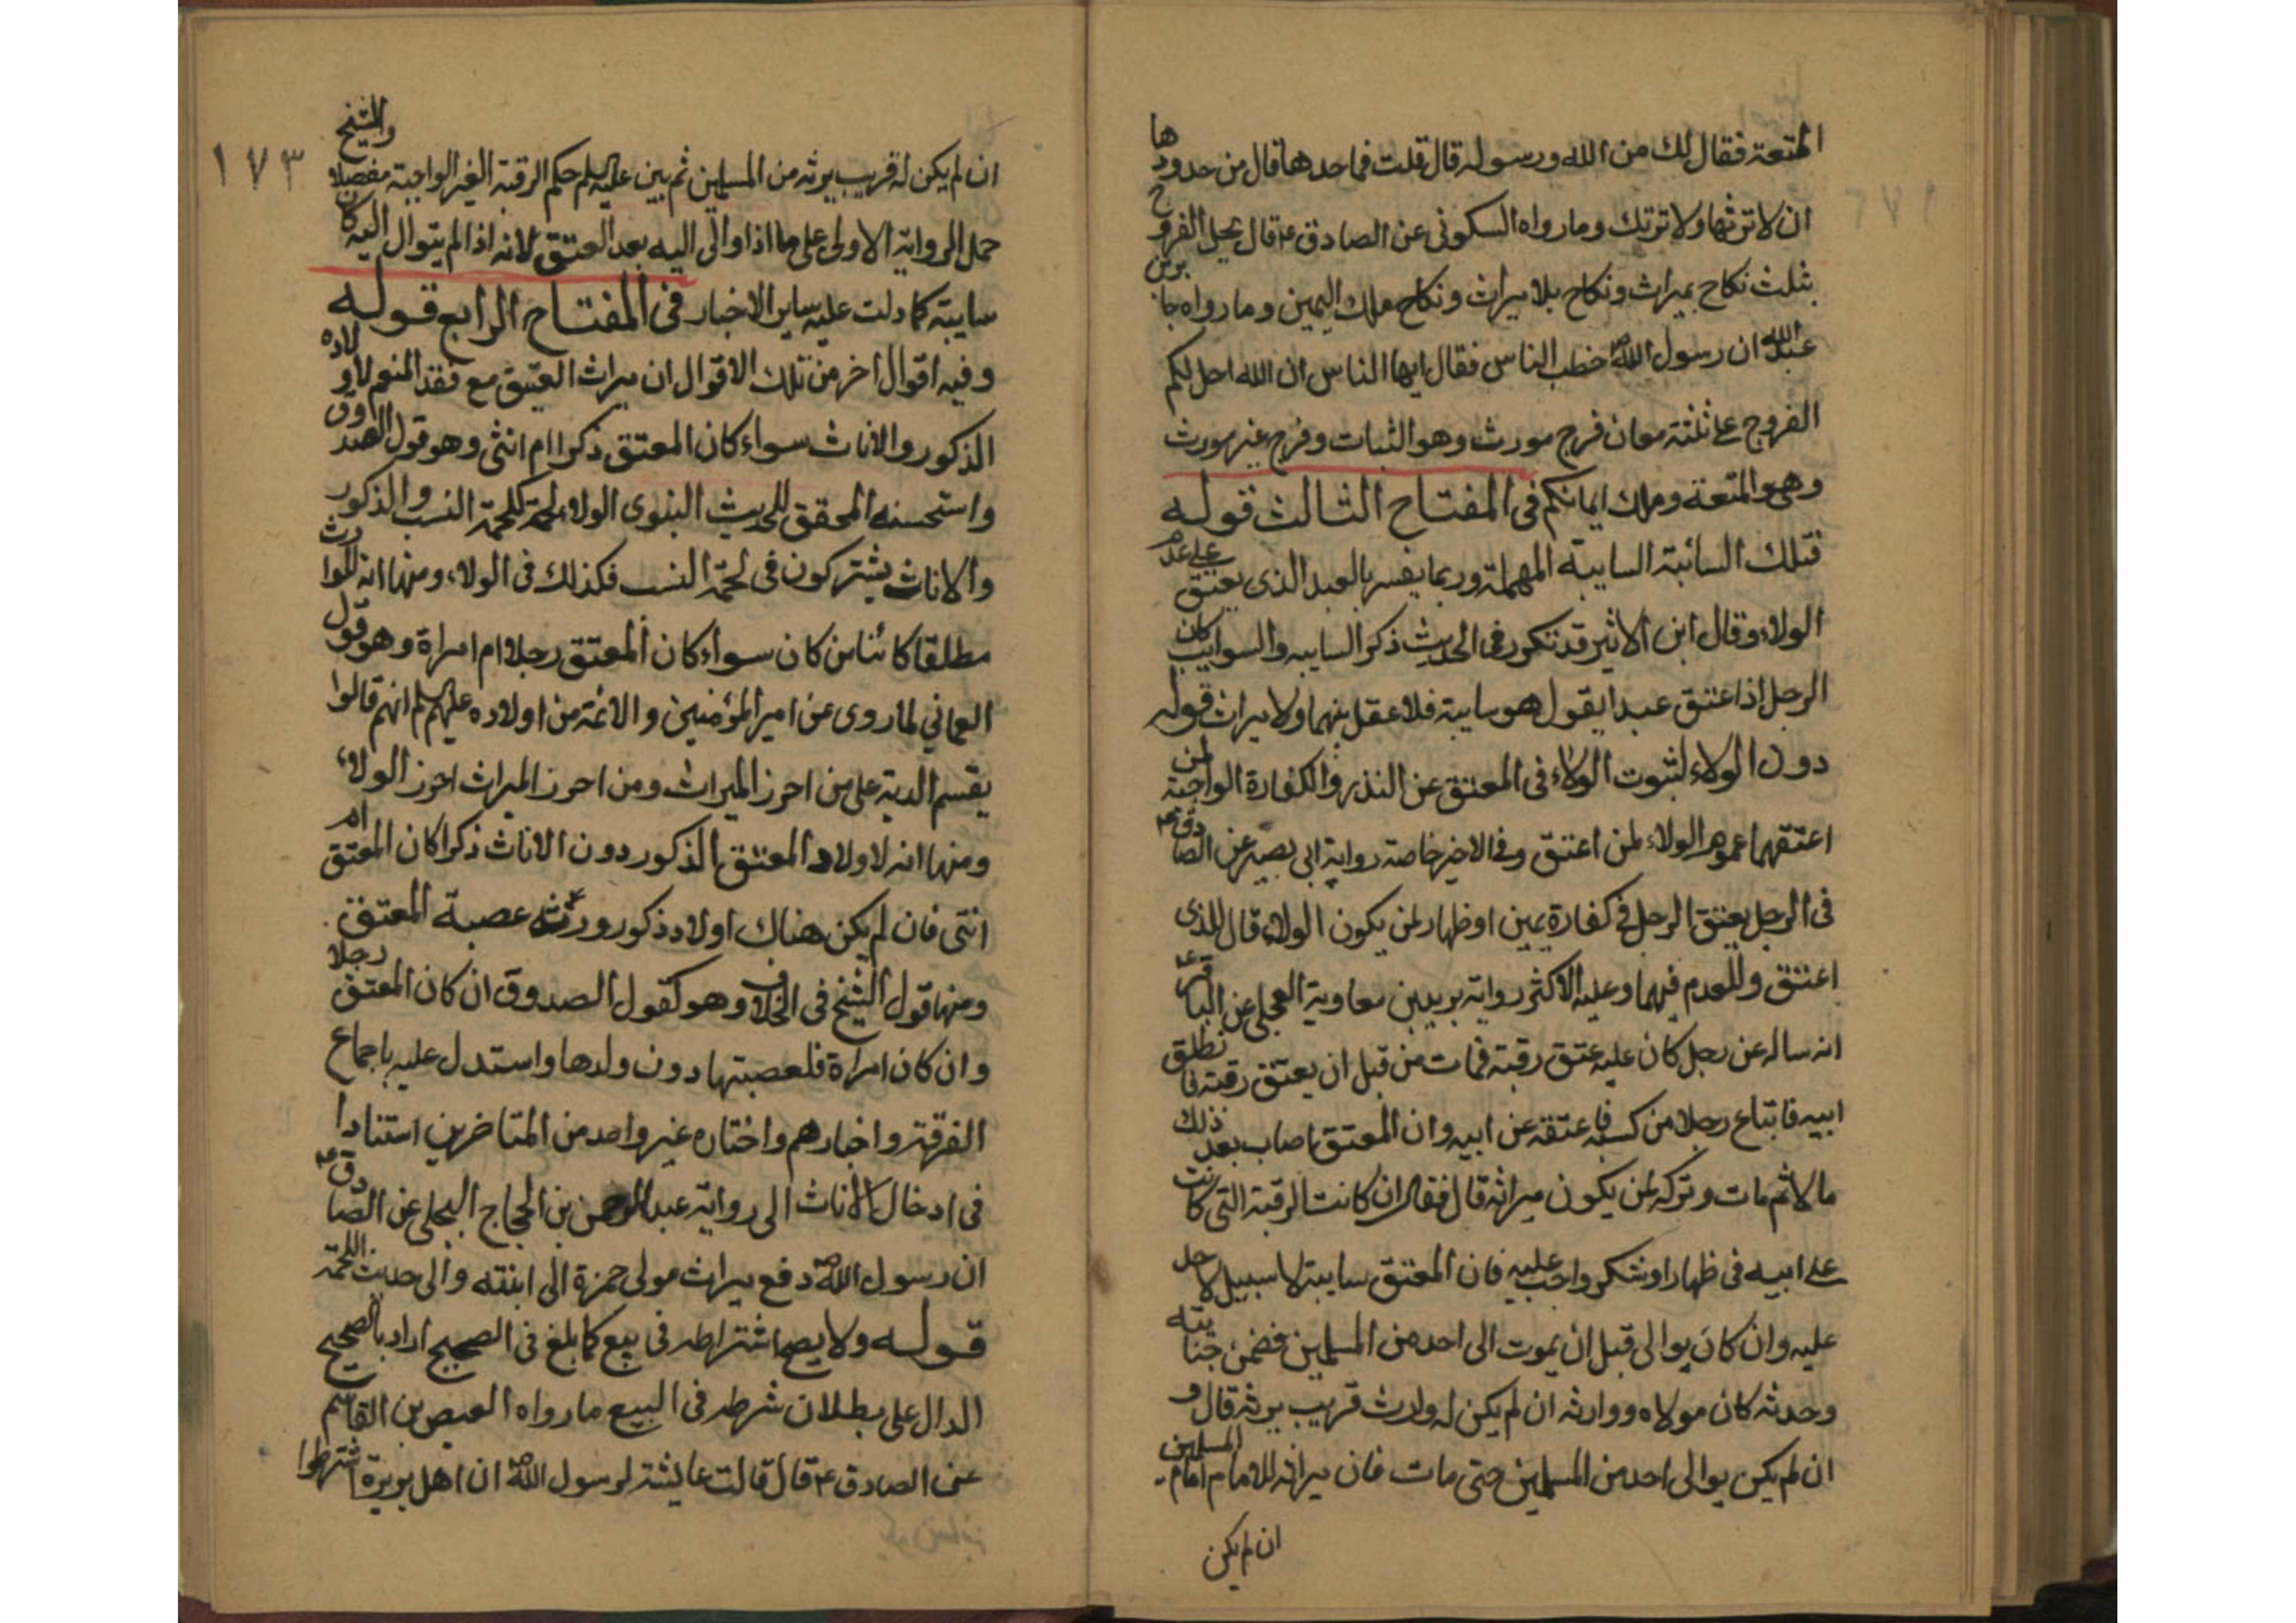 المتعة فقال لك من الله ورسوله قال قلت فما حدها قال من حدودها
ان لا ترثها ولا ترثك وما رواه السكونى عن الصادق ع قال يحل الفروج
بثلث نكاح بميراث ونكاح بلا ميراث ونكاح ملك اليمين وما رواه جابر بن
عبد الله ان رسول الله ص خطب الناس فقال ايها الناس ان الله احل لكم
الفروج على ثلثة معان فرج مورث وهو الثبات وفرج غير مورث
وهو المتعة وملك ايمانكم فى المفتاح الثالث قوله
فتلك السائبة السايبة المهملة وربما يفسر بالعبد الذى يعتق على عدم
الولاء وقال ابن الاثير قد تكرر فى الحديث ذكر السايبه والسوايب كان
الرجل اذا عتق عبدا يقول هو سايبة فلا عقل بنهما ولا ميراث قوله
دون الولاء لثبوت الولاء فى المعتق عن النذر والكفارة الواجبة لمن
اعتقهما عموم الولاء لمن اعتق وفى الاخير خاصة رواية ابى بصير عن الصادق ع
فى الرجل يعتق الرجل فى كفارة يمين او ظهار لمن يكون الولاء قال للذى
اعتق وللعدم فيهما وعليه الاكثر رواية بريد بن معاوية العجلى عن الباقر ع
انه ساله عن رجل كان عليه عتق رقبة فمات من قبل ان يعتق رقبة فانطلق
ابيه فابتاع رجلا من كسبه فاعتقه عن ابيه وان المعتق اصاب بعد ذلك
مالا ثم مات وتركه لمن يكون ميراثه قال فقال ان كانت الرقبة التى كانت
على ابيه فى ظهار او شكر واجب عليه فان المعتق سايبة لا سبيل لاحد
عليه وان كان يوالى قبل ان يموت الى احد من المسلمين فضمن جنايته
وحدثه كان مولاه ووارثه ان لم يكن له وارث قريب يرثه قال و
ان لم يكن يوالى احد من المسلمين حتى مات فان ميراثه للامام امام المسلمين
ان لم يكن
١٧٣
ان لم يكن له قريب يرثه من المسلمين ثم بين عليه السلم حكم الرقبة الغير الواجبة مفصلا والشيخ
حمل الرواية الاولى على ما اذا والى اليه بعد العتق لانه اذا لم يتوال اليه كان
سايبة كما دلت عليه ساير الاخبار فى المفتاح الرابع قوله
وفيه اقوال اخر من تلك الاقوال ان ميراث العتيق مع فقد المنعم لاولاده
الذكور والاناث سواء كان المعتق ذكرا ام انثى وهو قول الصدوق
واستحسنه المحقق للحديث النبوى الولاء لحمة كلحمة النسب والذكور
والاناث يشتركون فى لحمة النسب فكذلك فى الولاء ومنها انه للوارث
مطلقا كائنا من كان سواء كان المعتق رجلا ام امراة وهو قول
العمانى لما روى عن امير المؤمنين والائمة من اولاده عليهم السلم انهم قالوا
يقسم الدية على من احرز الميراث ومن احرز الميراث احرز الولاء
ومنها انه لاولاد المعتق الذكور دون الاناث ذكرا كان المعتق ام
انثى فان لم يكن هناك اولاد ذكور ورثته عصبة المعتق
ومنها قول الشيخ فى الخلاف وهو كقول الصدوق ان كان المعتق رجلا
وان كان امراة فلعصبتها دون ولدها واستدل عليه باجماع
الفرقة واخبارهم واختاره غير واحد من المتاخرين استنادا
فى ادخال الاناث الى رواية عبد الرحمن بن الحجاج البجلى عن الصادق ع
ان رسول الله ص دفع ميراث مولى حمزة الى ابنته والى حديث اللحمة
قوله ولا يصح اشتراطه فى بيع كما بلغ فى الصحيح اراد بالصحيح
الدال على بطلان شرطه فى البيع ما رواه العيص بن القاسم
عن الصادق ع قال قالت عايشة لرسول الله ص ان اهل بريرة اشترطوا